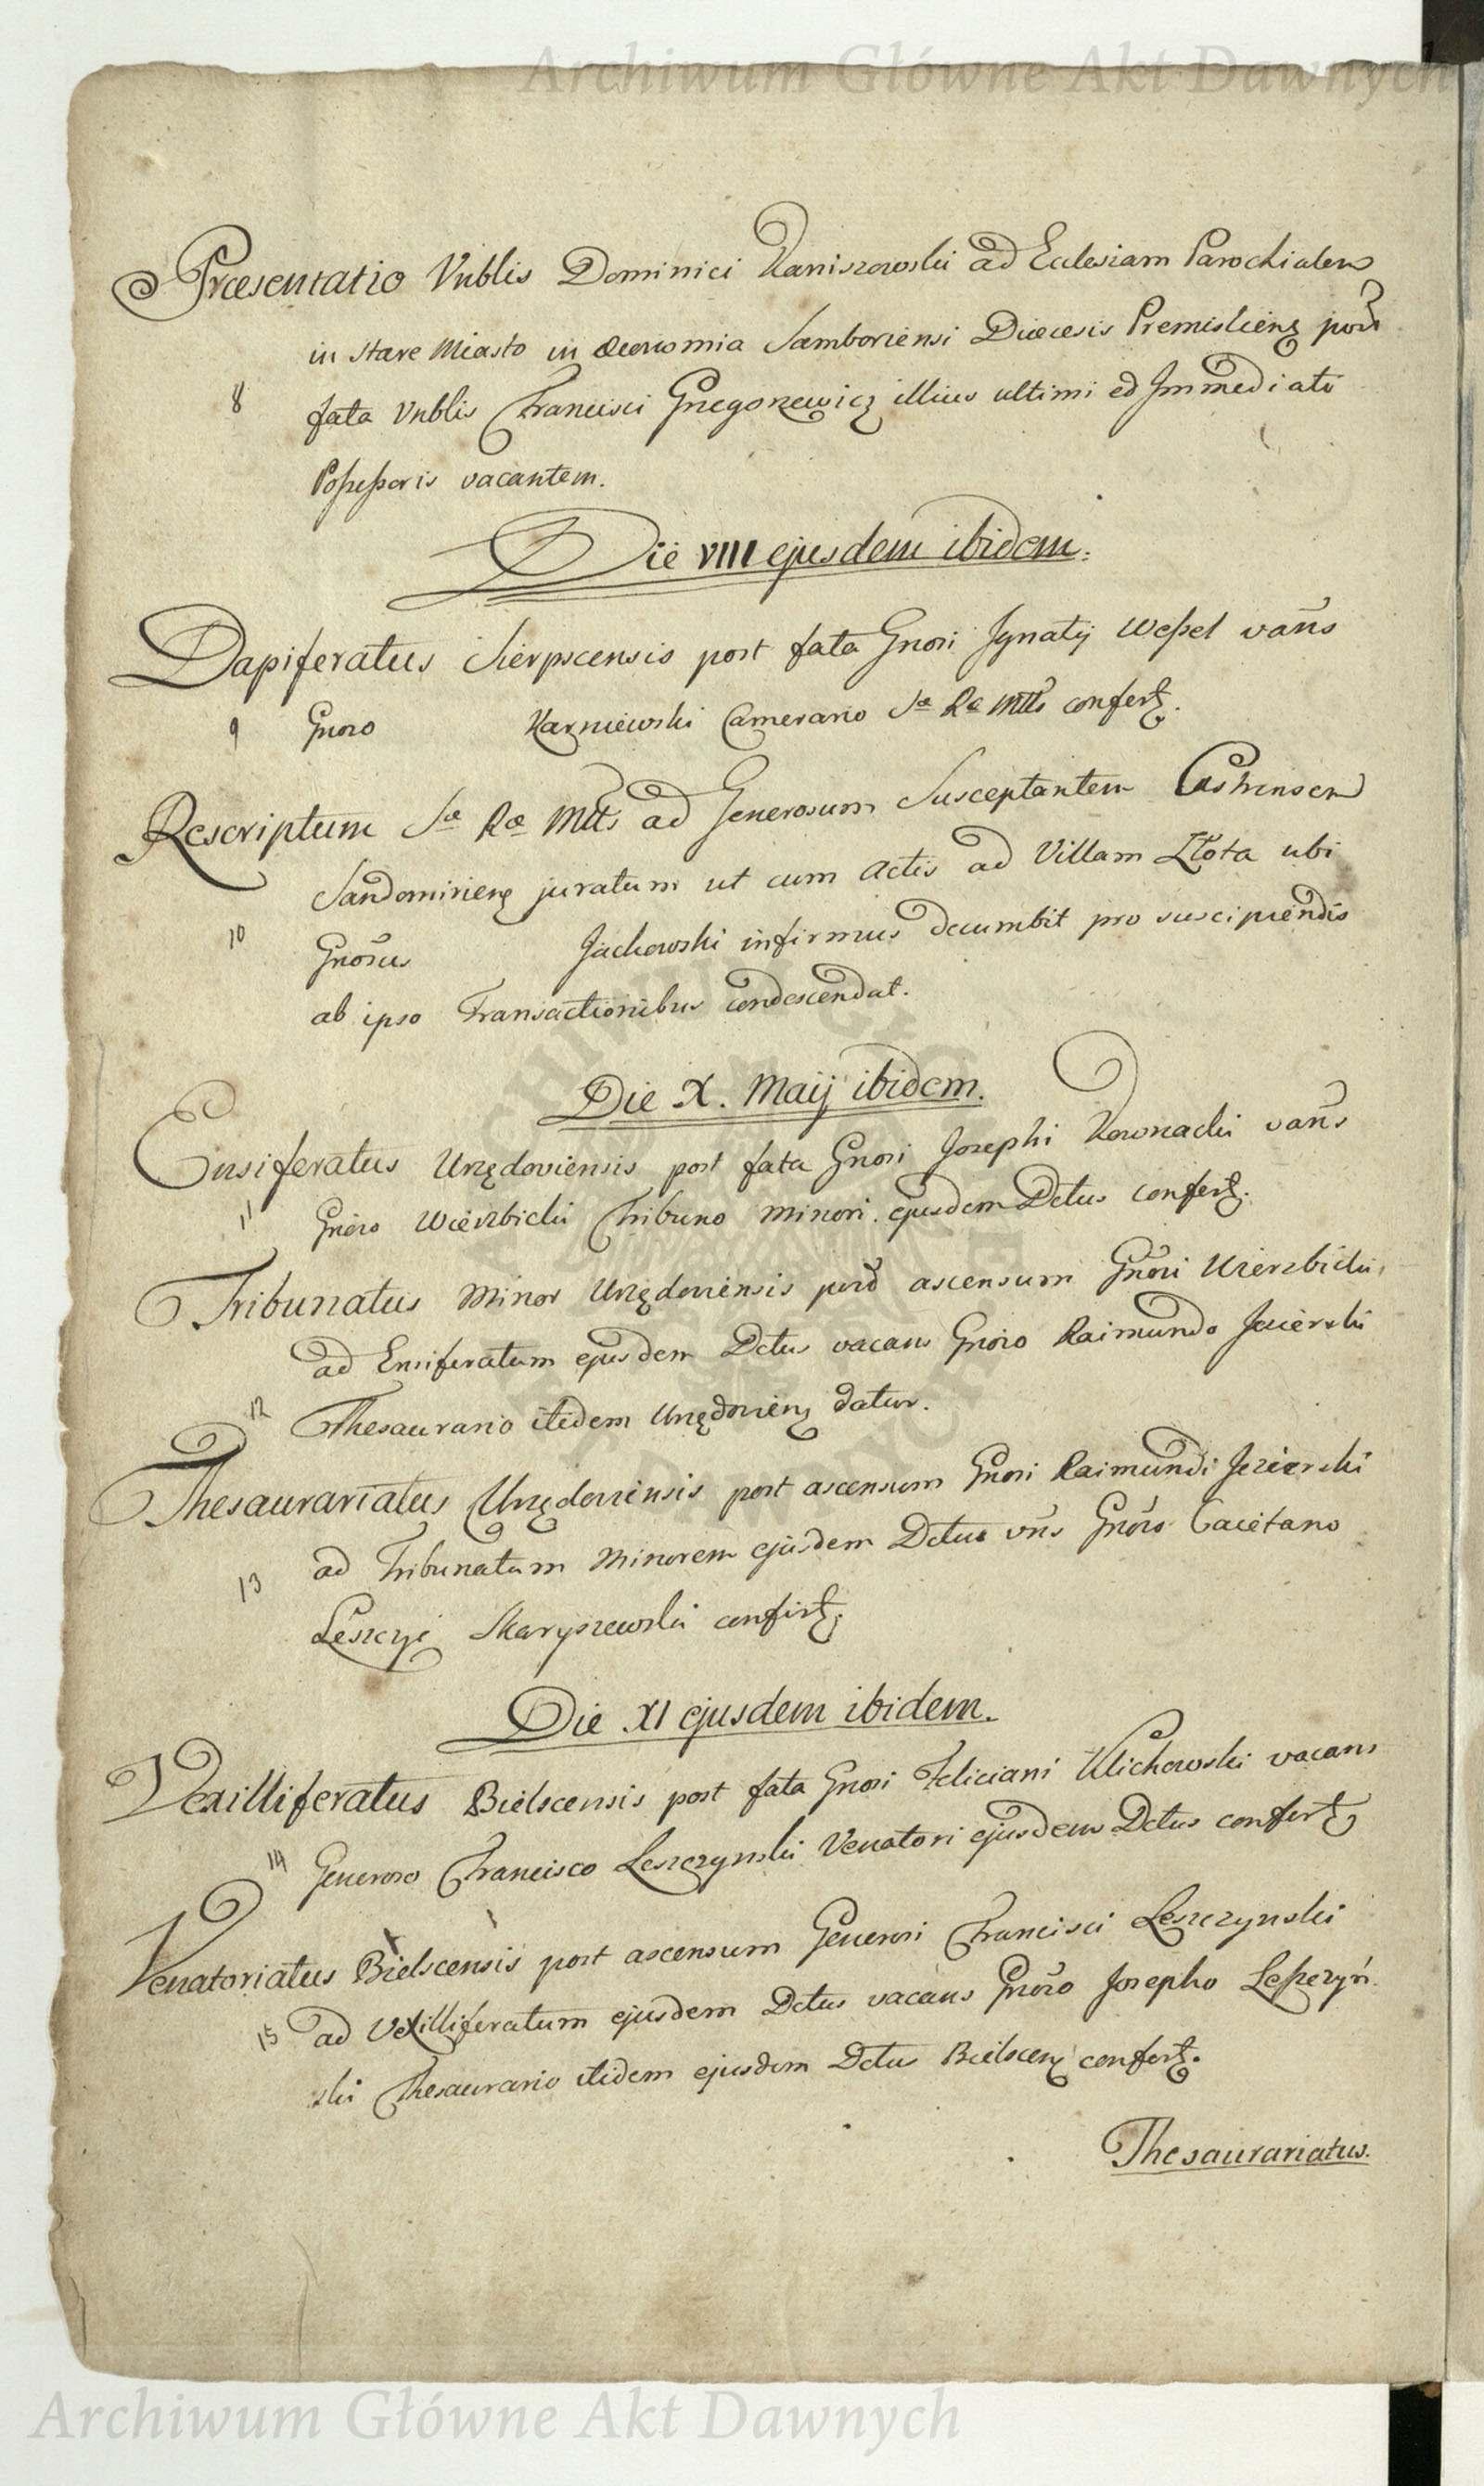 Archiwum Główne Akt Dawnych
Præsentatio Vnblis Dominici Kaniszowski ad Ecclesiam Parochialem
in Stare Miasto in Œconomia Samboriensi Diœcesis Premislien post
8 fata Vnblis Francisci Grzegorzewicz illius ultimi ed Immediati
Poßeßoris vacantem.
Die VIII ejusdem ibidem.
Dapiferatus Sierpscensis post fata Gnosi Ignatij Weßel vans
9 Gnoso Karniewski Camerario Sæ Ræ Mttis confert.
Rescriptum Sæ Ræ Mtts ad Generosum Susceptantem Castrensem
Sandomirien juratum ut cum Actis ad Villam Złota ubi
10 Gnosus Jachowski infirmus decumbit pro suscipiendis
ab ipso Transactionibus condescendat.
Die X. Maij ibidem.
Ensiferatus Urzędoviensis post fata Gnosi Josephi Kownacki vans
11 Gnoso Wierzbicki Tribuno minori ejusdem Dctus confert.
Tribunatus Minor Urzędoviensis post ascensum Gnosi Wierzbicki
ad Ensiferatum ejusdem Dctus vacans Gnoso Raimundo Jezierski
12 Thesaurario itidem Urzędovien datur.
Thesaurariatus Urzędoviensis post ascensum Gnosi Raimundi Jezierski
13 ad Tribunatum Minorem ejusdem Dctus vns Gnoso Caietano
Leszczyc Skaryszewski confert.
Die XI ejusdem ibidem.
Vexilliferatus Bielscensis post fata Gnosi Feliciani Klichowski vacans
14 Generoso Francisco Leszczynski Venatori ejusdem Dctus confert
Venatoriatus Bielscensis post ascensum Generosi Francisci Leszczynski
15 ad Vexilliferatum ejusdem Dctus vacans Gnoso Josepho Leßczyń
ski Thesaurario itidem ejusdem Dctus Bielscen confert.
Thesaurariatus.
Archiwum Główne Akt Dawnych